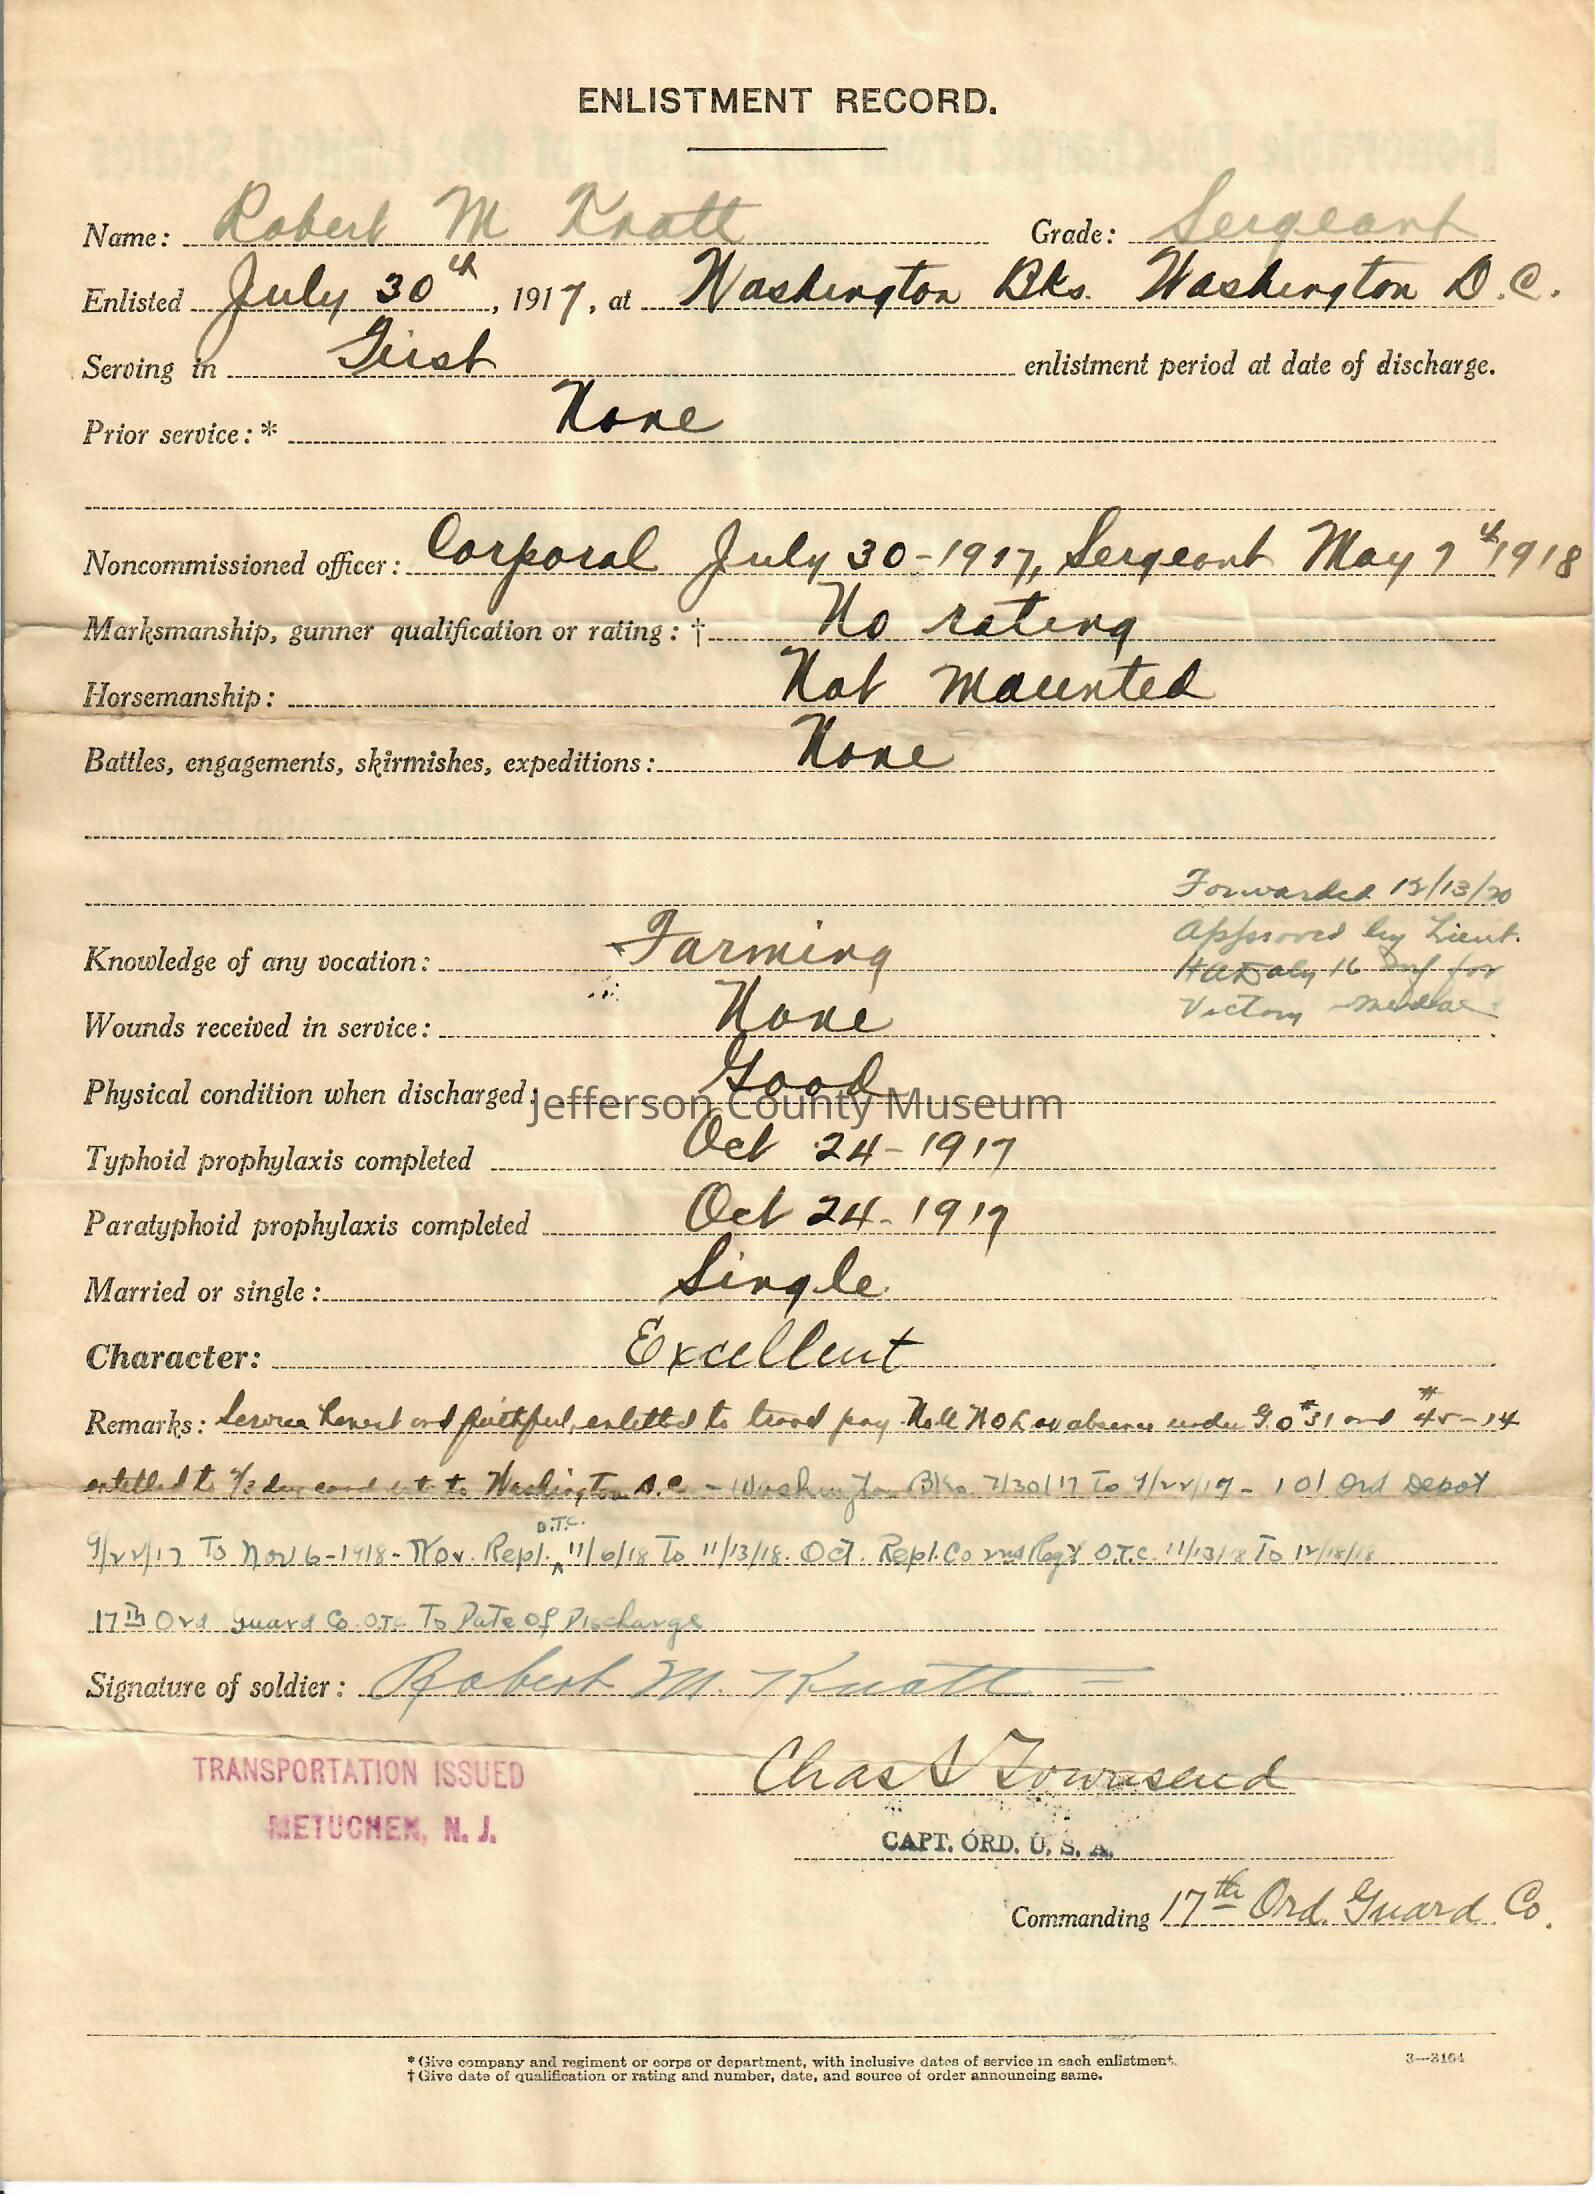 ENLISTMENT RECORD.
Name: Robert M Knott Grade: Sergeant
Enlisted July 30th, 1917, at Washington Bks. Washington D.C.
Serving in First enlistment period at date of discharge.
Prior service:* None
Noncommissioned officer: Corporal July 30-1917, Sergeant May 7th 1918
Marksmanship, gunner qualification or rating:† No rating
Horsemanship: Not mounted
Battles, engagements, skirmishes, expeditions: None
Forwarded 12/13/20
Approved by Lieut.
Knowledge of any vocation: Farming
H A Daly 16 Inf for
Victory medal
Wounds received in service: None
Physical condition when discharged: Good
Jefferson County Museum
Typhoid prophylaxis completed Oct 24-1917
Paratyphoid prophylaxis completed Oct 24-1917
Married or single: Single
Character: Excellent
Remarks: Service honest and faithful, entitled to travel pay. No absence under G.O #31 and #45-14
entitled to to Washington D.C - Washington Bks. 7/30/17 To 9/22/17 - 101 Ord Depot
9/22/17 To Nov 6-1918 - Nov. Repl. O.T.C. 11/6/18 To 11/13/18. Oct. Repl. Co 2nd Reg't O.T.C. 11/13/18 To 12/18/18
17th Ord Guard Co. O.T.C To Date of Discharge
Signature of soldier: Robert M. Knott
TRANSPORTATION ISSUED
METUCHEN, N. J.
Chas S Townsend
CAPT. ORD. U. S. A.
Commanding 17th Ord. Guard Co.
* Give company and regiment or corps or department, with inclusive dates of service in each enlistment.
† Give date of qualification or rating and number, date, and source of order announcing same.
3—3164